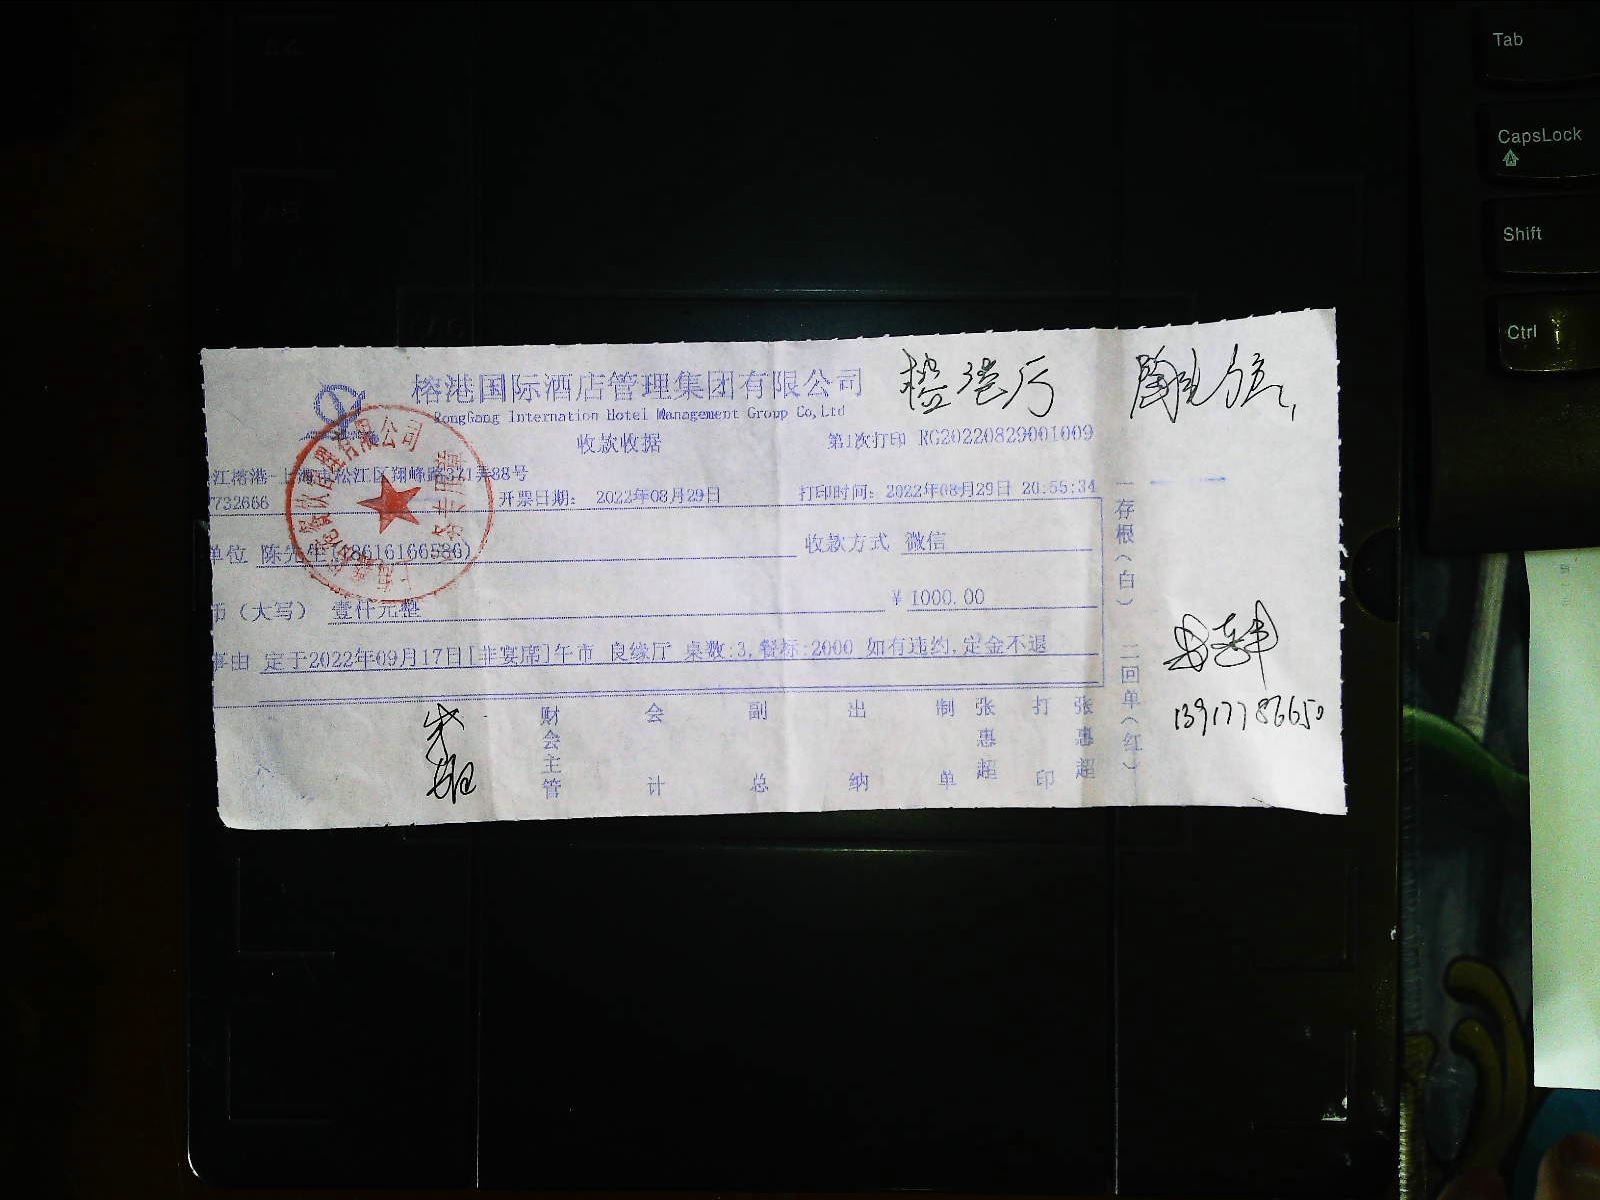 榕港国际酒店管理集团有限公司
RongGang Internation Hotel Management Group Co,Ltd
收款收据
第1次打印 RG20220829001009
江榕港-上海市松江区翔峰路371弄88号
732666 开票日期: 2022年08月29日 打印时间: 2022年08月29日 20:55:34
单位 陈先生(18616166586) 收款方式 微信
币(大写) 壹仟元整 ¥ 1000.00
事由 定于2022年09月17日[非宴席]午市 良缘厅 桌数:3,餐标:2000 如有违约,定金不退
财会主管 会计 副总 出纳 制单 张惠超 打印 张惠超
一存根(白) 二回单(红)
13917786650
Tab
CapsLock
Shift
Ctrl